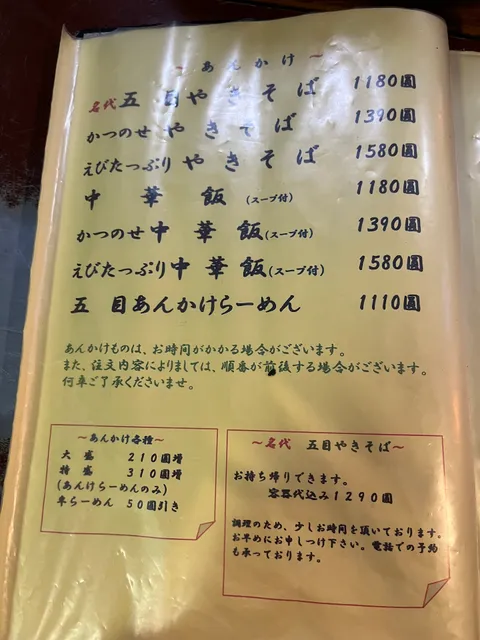 ～ あんかけ ～
名代 五目やきそば 1180圓
かつのせ やきそば 1390圓
えびたっぷり やきそば 1580圓
中華飯 (スープ付) 1180圓
かつのせ 中華飯 (スープ付) 1390圓
えびたっぷり 中華飯 (スープ付) 1580圓
五目あんかけらーめん 1110圓
あんかけものは、お時間がかかる場合がございます。
また、注文内容によりましては、順番が前後する場合がございます。
何卒ご了承くださいませ。
～あんかけ各種～
大盛 210圓増
特盛 310圓増
(あんけらーめんのみ)
半らーめん 50圓引き
～名代 五目やきそば～
お持ち帰りできます。
容器代込み1290圓
調理のため、少しお時間を頂いております。
お早めにお申しつけ下さい。電話での予約
も承っております。